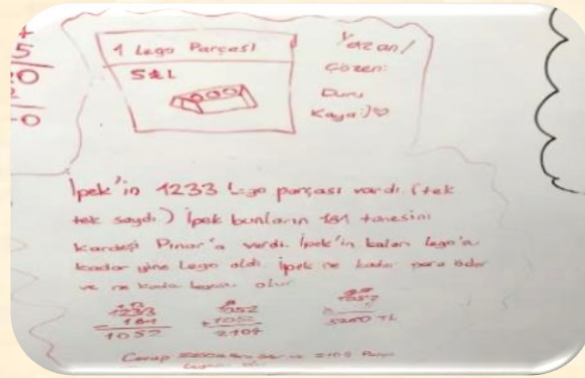 +
5
0
0
1 Lego Parçası
5 ₺L
Yazan/
Çözen:
Duru
Kaya:)♡
İpek'in 1233 Lego parçası vardı. (tek
tek saydı.) İpek bunların 181 tanesini
kardeşi Pınar'a verdi. İpek'in kalan lego'a
kadar yine Lego aldı. İpek ne kadar para öder
ve ne kadar legosu olur
1233 1052 1052
- 181 +1052
1052 2104 5260 TL
Cevap ve 2104